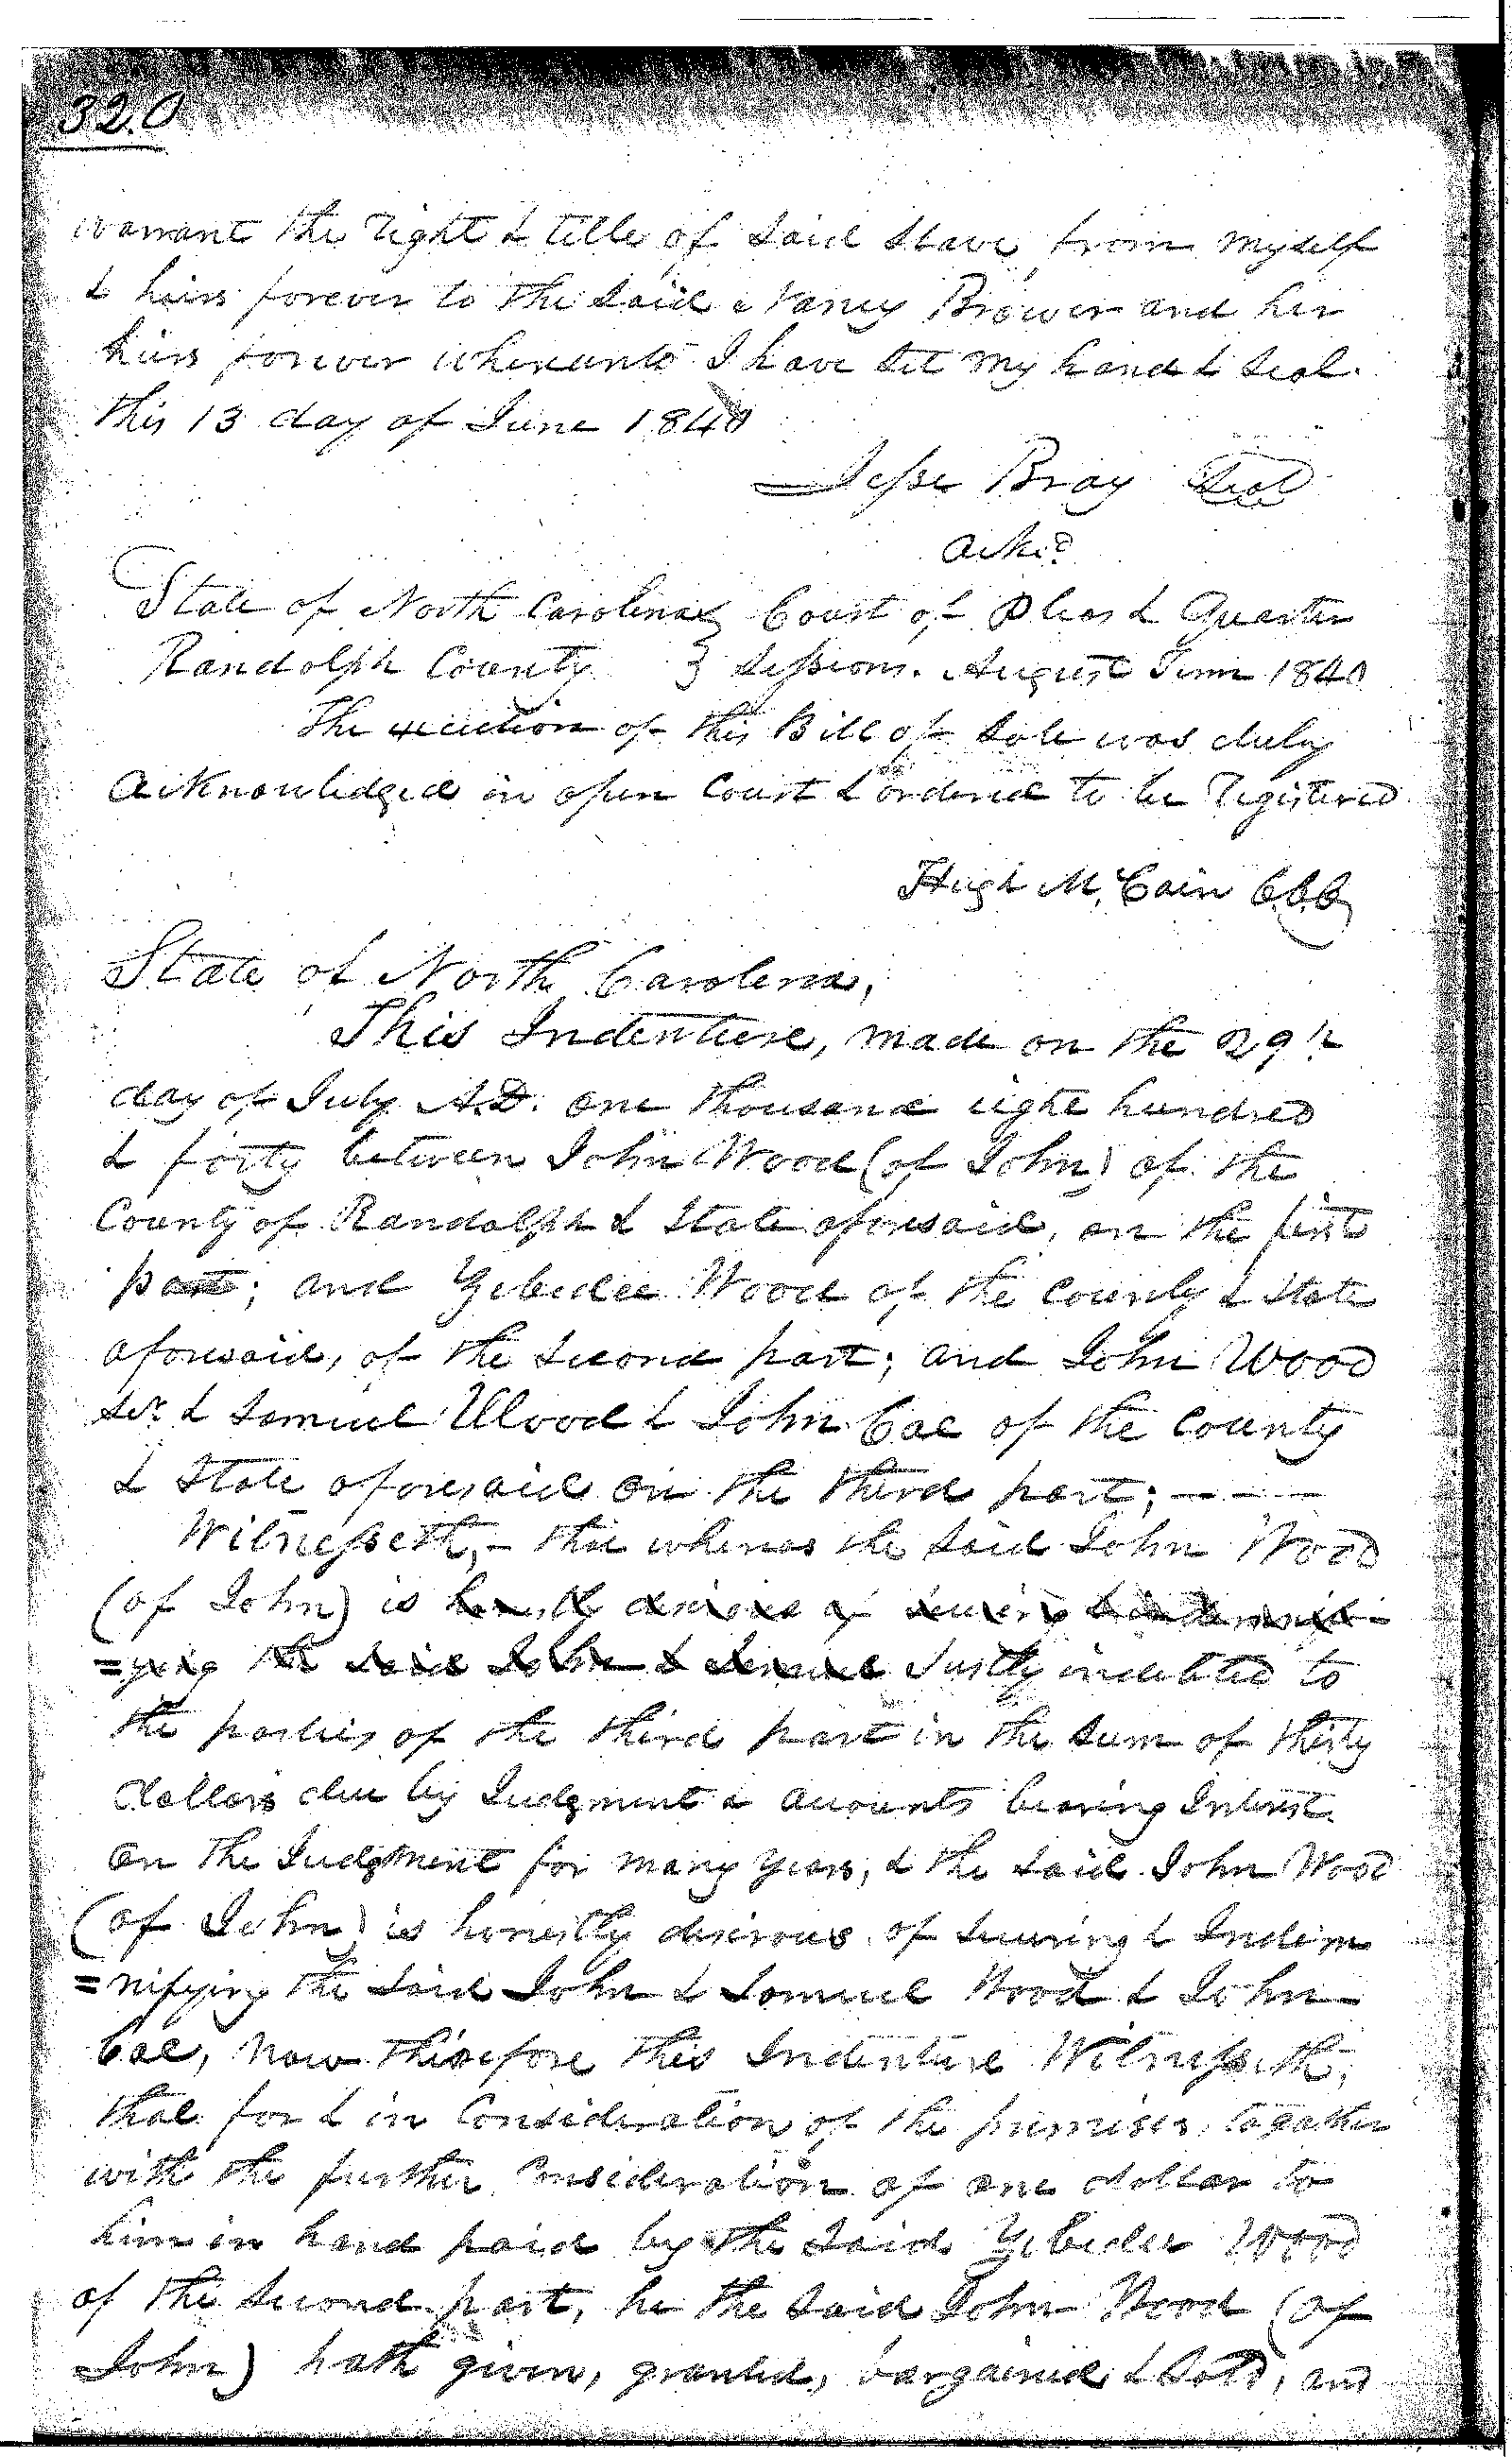 320
warrant the right & title of said slave from myself
& heirs forever to the said Nancy Brower and her
heirs forever whereunto I have set my hand & seal.
this 13 day of June 1840
Jesse Bray Seal
Ackd
State of North Carolina } Court of Pleas & Quarter
Randolph County } Sessions. August Term 1840
The execution of this Bill of Sale was duly
acknowledged in open Court & ordered to be registered
Hugh McCain C.C.C.
State of North Carolina,
This Indenture, made on the 29th
day of July A.D. one thousand eight hundred
& forty between John Wood (of John) of the
County of Randolph & State aforesaid, on the first
part; and Zebedee Wood of the County & State
aforesaid, of the second part; and John Wood
Senr. & Samuel Wood & John Coe of the County
& State aforesaid on the third part; - - -
Witnesseth, - that whereas the said John Wood
(of John) is honestly desirous of securing & indemnif-
=ying the said John & Samuel Justly indebted to
the parties of the third part in the sum of thirty
dollars due by Judgment & accounts bearing Interest
on the Judgment for many years, & the said John Wood
(of John) is honestly desirous of securing & Indem
=nifying the said John & Samuel Wood & John
Coe, now therefore this Indenture Witnesseth,
that for & in Consideration of the premises, together
with the further Consideration of one dollar to
him in hand paid by the said Zebedee Wood
of the second part, he the said John Wood (of
John) hath given, granted, bargained & sold, and